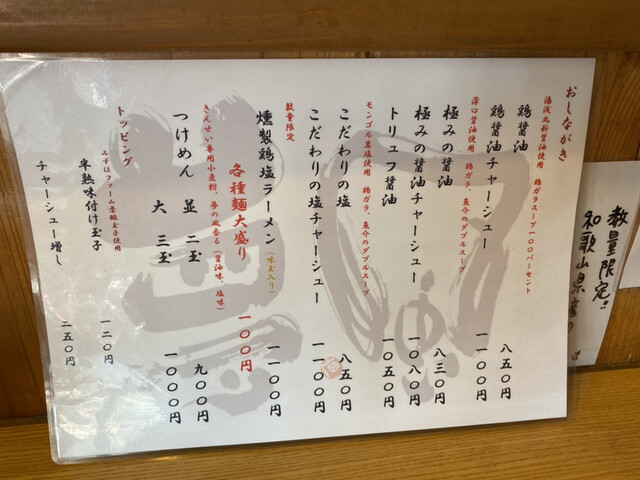 おしながき
湯浅丸新醤油使用 鶏ガラスープ一〇〇パーセント
鶏醤油 八五〇円
鶏醤油チャーシュー 一一〇〇円
薄口醤油使用 鶏ガラ、魚介のダブルスープ
極みの醤油 八三〇円
極みの醤油チャーシュー 一〇八〇円
トリュフ醤油 一〇五〇円
モンゴル岩塩使用 鶏ガラ、魚介のダブルスープ
こだわりの塩 八五〇円
こだわりの塩チャーシュー 一一〇〇円
数量限定
燻製鶏塩ラーメン(味玉入り) 一一〇〇円
各種麺大盛り 一〇〇円
きんせい専用小麦粉、夢の風香る(醤油味、塩味)
つけめん 並 二玉 九〇〇円
大 三玉 一〇〇〇円
トッピング
みずほファーム葉酸玉子使用
半熟味付け玉子 一二〇円
チャーシュー増し 二五〇円
数量限定!!
和歌山県産